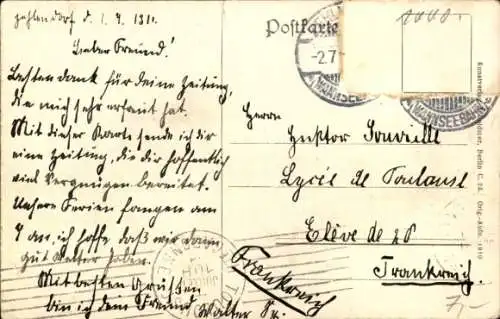 Zehlendorf d. 1. 7. 1911.
Lieber Freund!
Besten Dank für deine Zeitung,
die mich sehr erfreut hat.
Mit dieser Karte sende ich dir
eine Zeitung, die dir hoffentlich
viel Vergnügen bereitet.
Unsere Ferien fangen am
7 an, ich hoffe, daß wir dann
gut Wetter haben.
Mit besten Grüßen
bin ich dein Freund Walter
Postkarte
1000.-
-2.7.
WANNSEEBAHN
WANNSEEBAHN
Herrn
Lycée de Toulouse
Elève de 2e
Frankreich.
Frankreich
7,-
Berlin C. 25. Orig.-Aufn. 1910